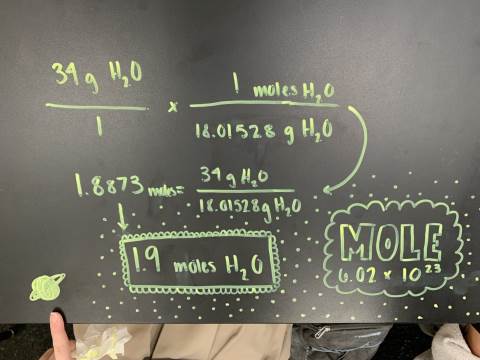 34 g H₂O / 1 x 1 moles H₂O / 18.01528 g H₂O
1.8873 moles = 34 g H₂O / 18.01528 g H₂O
1.9 moles H₂O
MOLE
6.02 x 10²³